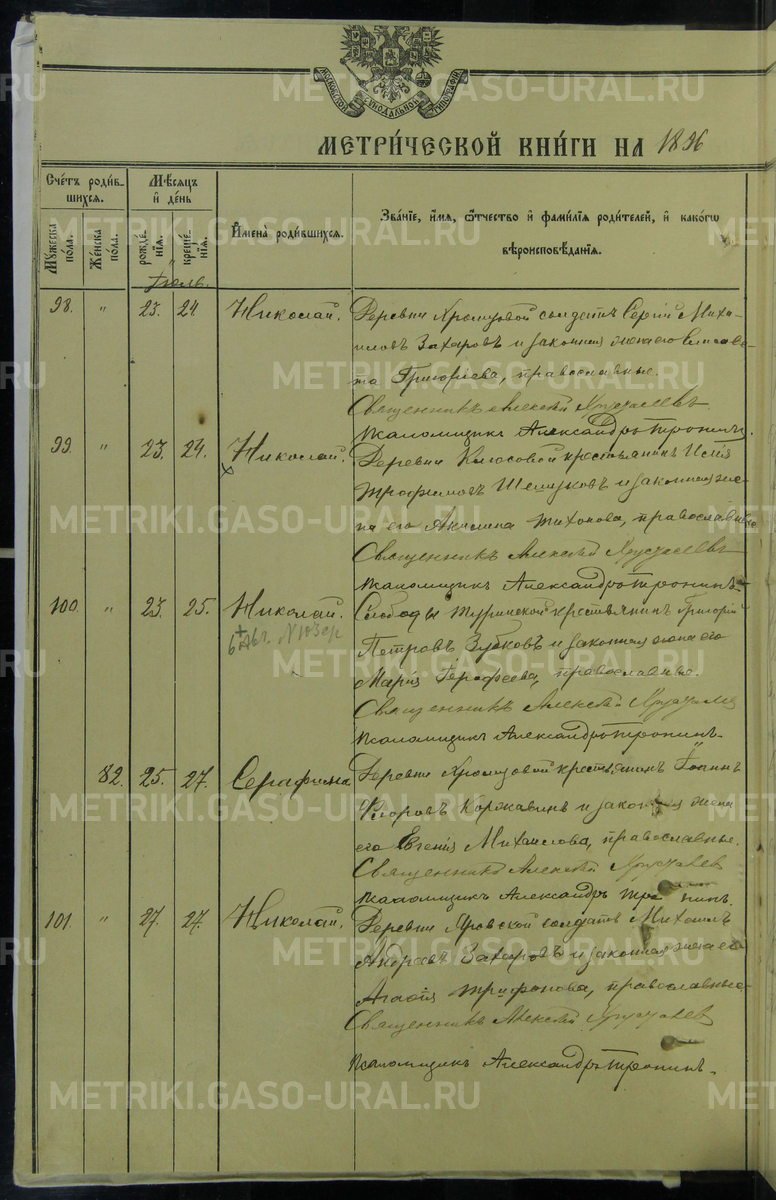 МОСКОВСКОЙ СѴНОДАЛЬНОЙ ТИПОГРАФІИ
МЕТРИ́ЧЕСКОЙ КНИ́ГИ НА 1896
Сче́тъ роди́в-
шихся.
Мѣ́сяцъ
и҆ де́нь
И҆мена̀ роди́вшихся.
Зва́нїе, и҆́мя, ѻ҆́тчество и҆ фами́лїя роди́телей, и҆ како́гѡ
вѣроисповѣ́данїя.
Мꙋ́жеска
по́ла.
Же́нска
по́ла.
рожде́-
нїѧ.
креще́-
нїѧ.
Іюль.
98. " 23. 24. Николай. Деревни Хромцовой солдатъ Сергій Миха-
иловъ Захаровъ и законная жена его Елисаве-
та Григорьева, православные.
Священникъ Алексѣй
Псаломщикъ Александръ Тронинъ.
99. " 23. 24. Николай. Деревни крестьянинъ
Трофимовъ и законная же-
на его Акилина Тихонова, православные
Священникъ Алексѣй
Псаломщикъ Александръ Тронинъ.
100. " 23. 25. Николай. Слободы Туринской крестьянинъ Григорій
Петровъ Зубковъ и законная жена его
6 Авг.
Марія Ерофеева, православные.
Священникъ Алексѣй
Псаломщикъ Александръ Тронинъ.
82. 25. 27. Серафима Деревни Хромцовой крестьянинъ Іоаннъ
Коржавинъ и законная жена
его Евгенія Михаилова, православные.
Священникъ Алексѣй
Псаломщикъ Александръ Тронинъ.
101 " 27. 27. Николай. Деревни солдатъ Михаилъ
Андреевъ Захаровъ и законная жена его
Агафія Трифонова, православные
Священникъ Алексѣй
Псаломщикъ Александръ Тронинъ.
METRIKI.GASO-URAL.RU